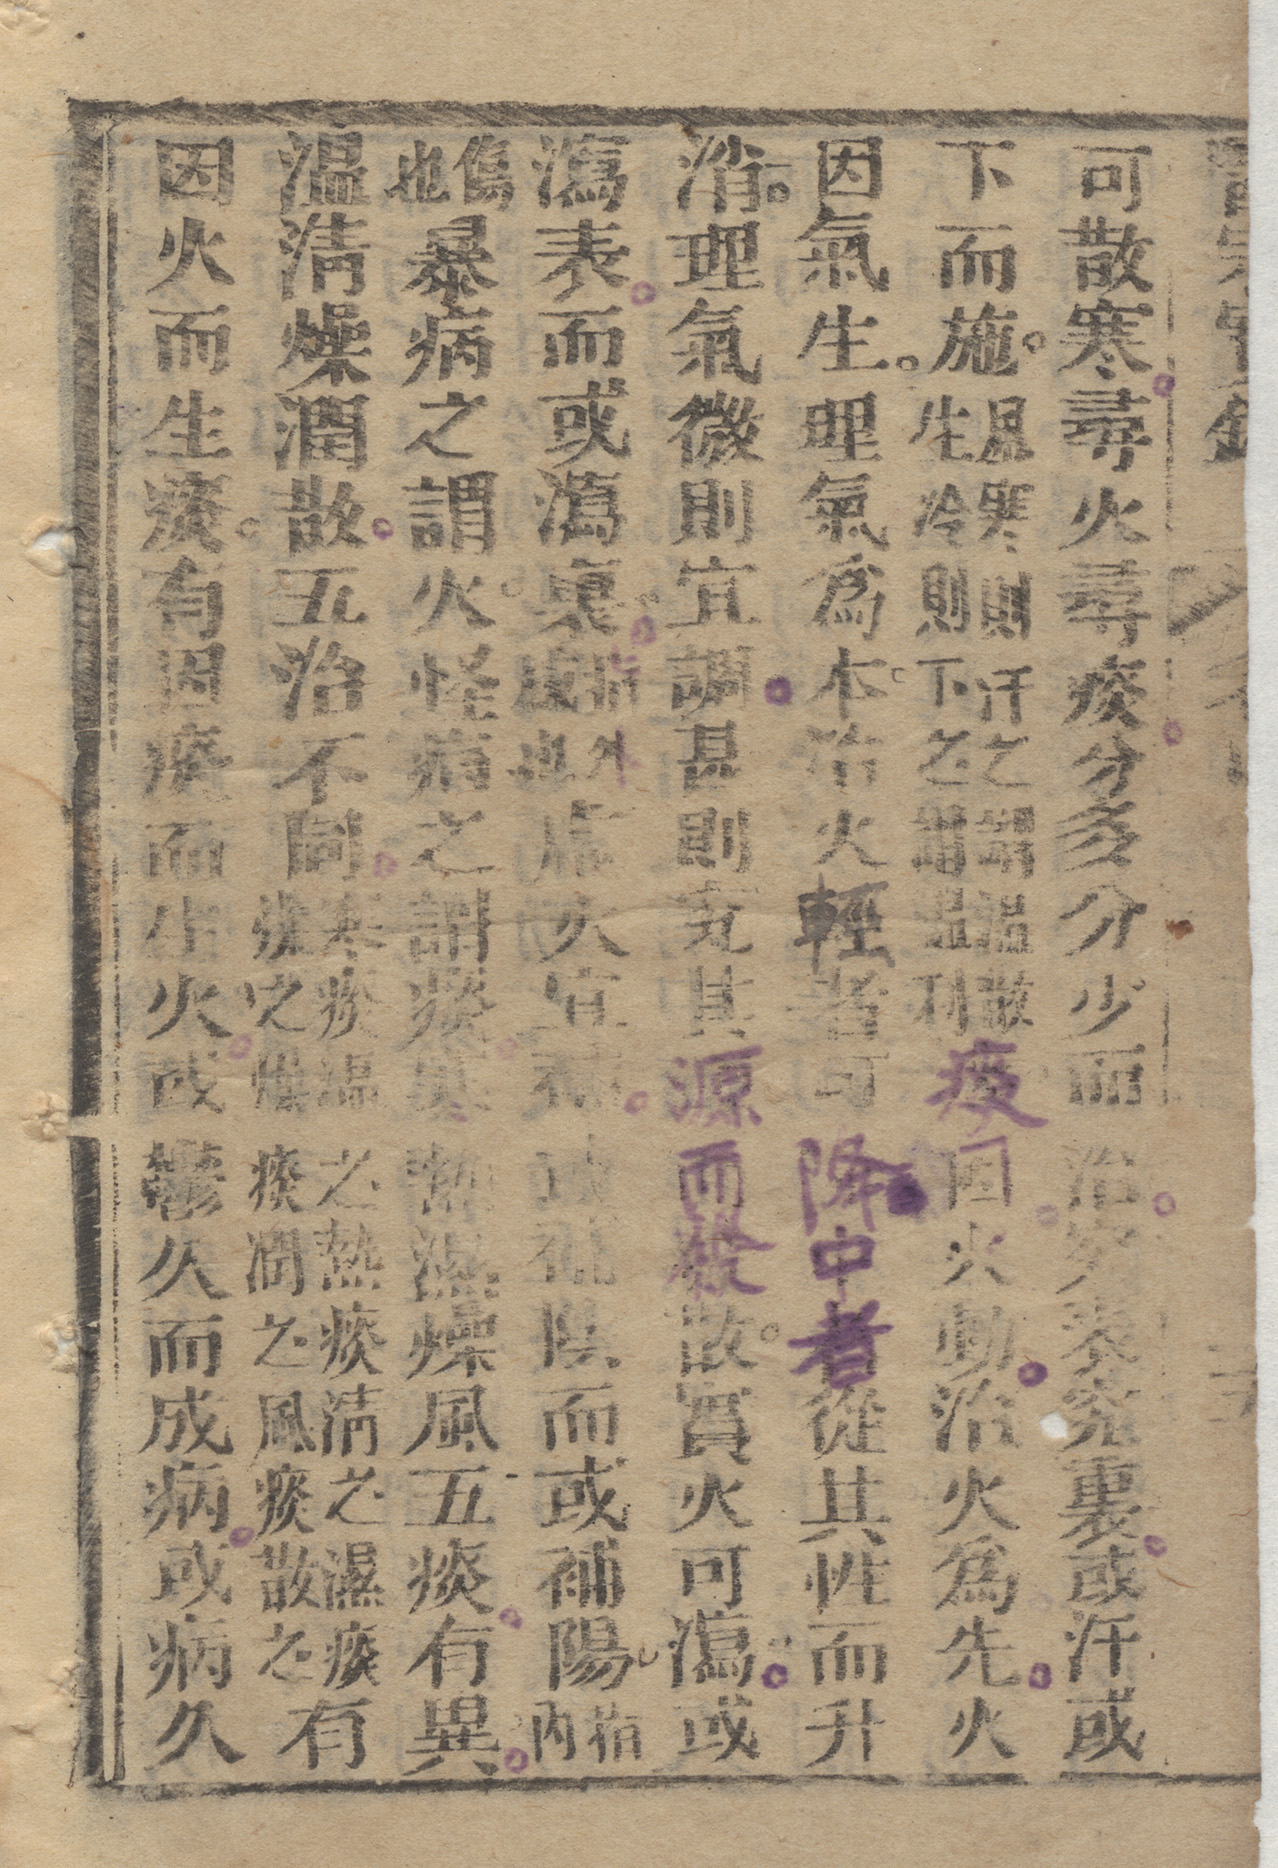 可散寒尋火尋痰分多介少而治究表究裏或汗或
下而施温寒則汗之謂温散生冷則下之謂温利痰因火動治火爲先火
因氣生理氣爲本治火輕者可降中者從其性而升
消理氣微則宜調甚則究其源而發散實火可瀉或
瀉表而或瀉裏指外感也虛火宜補或補陰而或補陽指内
傷也暴病之謂火怪病之謂痰寒熱濕燥風五痰有異
温清燥潤散五治不同寒痰温之熱痰清之濕痰燥之燥痰潤之風痰散之有
因火而生痰有因痰而生火或鬱久而成病或病久